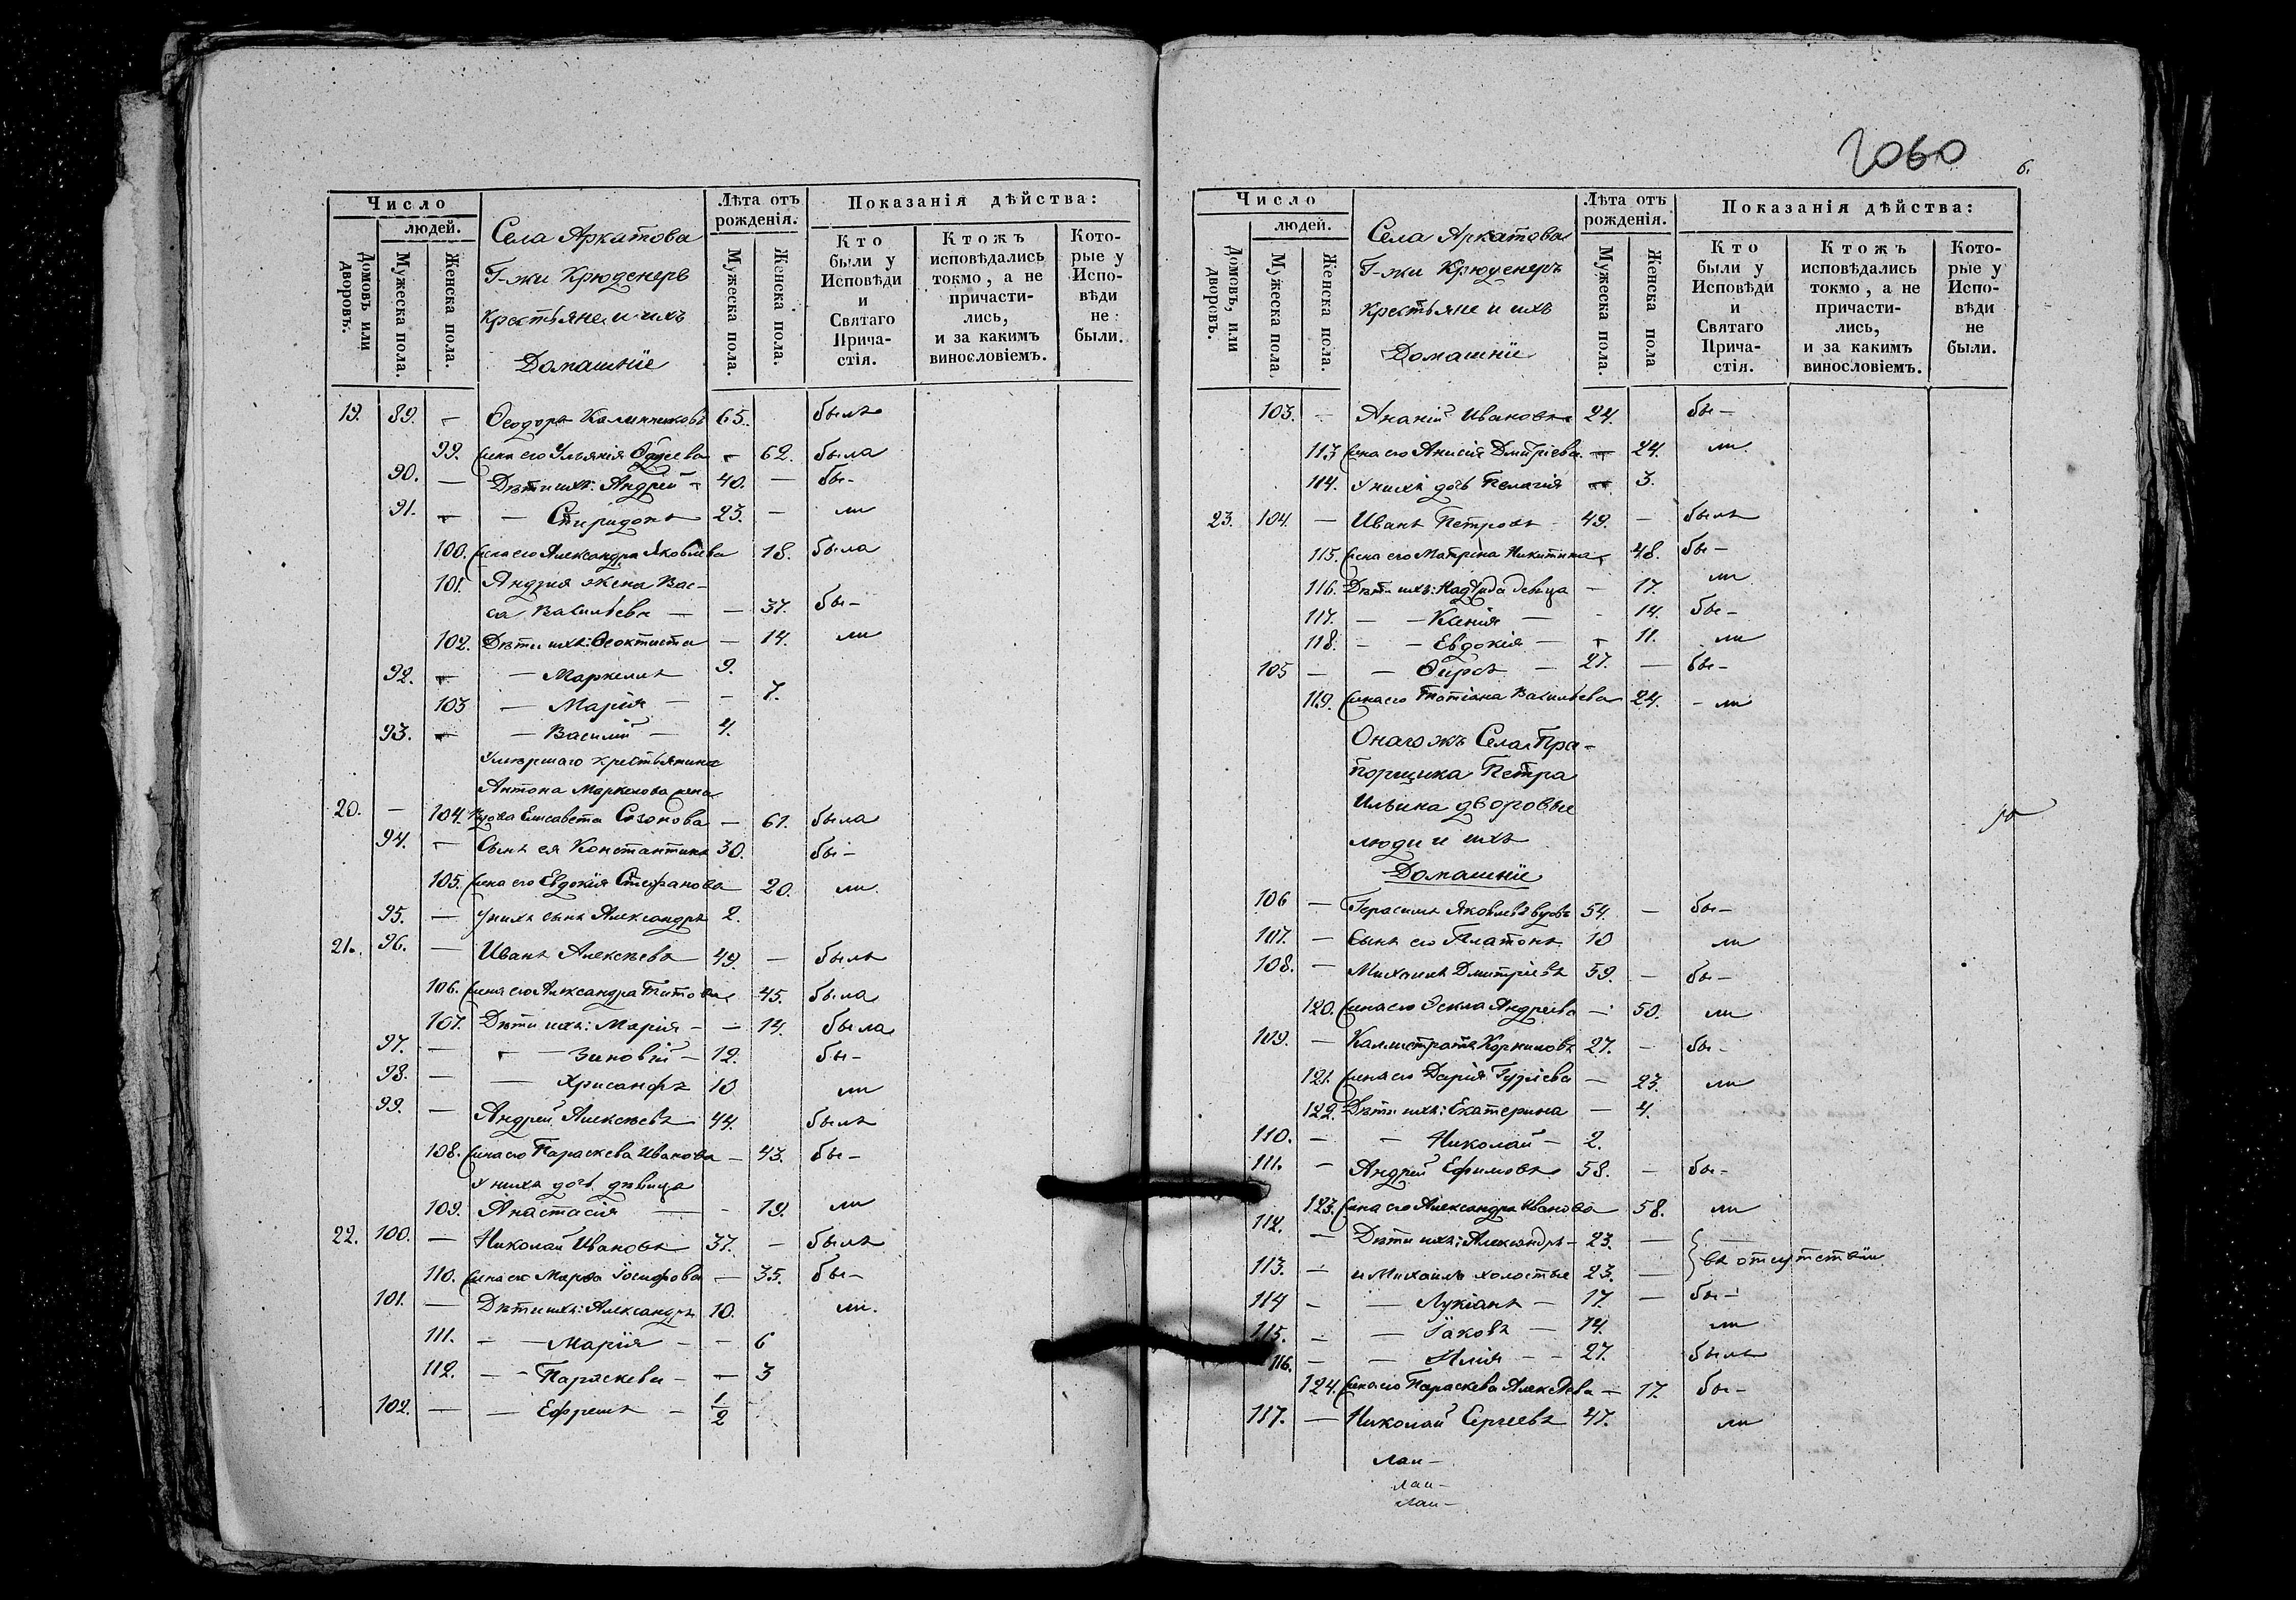 Число
людей.
Домовъ или дворовъ.
Мужеска пола.
Женска пола.
Села Аркатова
Г-жи Крюденеръ
Крестьяне и ихъ
Домашніе
Лѣта отъ рожденія.
Мужеска пола.
Женска пола.
Показанія дѣйства:
Кто были у Исповѣди и Святаго Прича-стія.
Ктожъ исповѣдались токмо, а не причасти-лись, и за какимъ винословіемъ.
Кото-рые у Испо-вѣди не были.
19. 89. — Ѳеодоръ Калинниковъ 65. былъ
99. Жена его Ульянія — 62. была
90. — Дѣти ихъ: Андрей — 40. — бы-
91. — — Спиридонъ 23. — ли
100. Жена его Александра Яковлева 18. была
101. Андрея жена Вас-
са Васильева — — 37. бы-
102. Дѣти ихъ: Ѳеоктиста — 14. ли
92. — — Маркеллъ 9.
103 — Марія — — 7.
93. — — Василій — 4.
Умершаго крестьянина
Антона Маркелова жена
20. — 104. Вдова Елисавета Созонова — 61. была
94. — Сынъ ея Константинъ 30. бы-
105. Жена его Евдокія Стефанова 20. ли
95. — У нихъ сынъ Александръ 2.
21. 96. — Иванъ Алексѣевъ 49. — былъ
106. Жена его Александра Титова 45. была
107. Дѣти ихъ: Марія — — 14. была
97. — — Зиновій — 12. бы-
98. — — Хрисанфъ 10 ли
99. — Андрей Алексѣевъ 44. былъ
108. Жена его Параскева Иванова — 43. бы-
У нихъ дочь дѣвица
109. Анастасія — — 19. ли
22. 100. — Николай Ивановъ 37. — былъ
110. Жена его Марѳа Іосифова — 35. бы-
101. — Дѣти ихъ: Александръ 10. ли.
111. — — Марія — — 6
112. — — Параскева — — 3
102. — — Ефремъ — 1/2
2060
6.
Число
людей.
Домовъ, или дворовъ.
Мужеска пола.
Женска пола.
Села Аркатова
Г-жи Крюденеръ
Крестьяне и ихъ
Домашніе
Лѣта отъ рожденія.
Мужеска пола.
Женска пола
Показанія дѣйства:
Кто были у Исповѣди и Святаго Прича-стія.
Ктожъ исповѣдались токмо, а не причасти-лись, и за какимъ винословіемъ.
Кото-рые у Испо-вѣди не были.
103. — Ананій Ивановъ 24. бы-
113 Жена его Анисія Дмитріева — 24. ли.
114. У нихъ дочь Пелагія — 3.
23. 104. — Иванъ Петровъ 49. — былъ
115. Жена его Матрена Никитина 48. бы-
116. Дѣти ихъ: Надежда девица — 17. ли
117. — — Ксенія — — 14. бы-
118. — — Евдокія — — 11. ли
105 — — Ѳирсъ — 27. — бы-
119. Жена его Татіана Васильева 24. — ли
Онаго жъ Села Пра-
порщика Петра
Ильина дворовые
люди и ихъ
Домашніе
106 — Герасимъ Яковлевъ вдовъ 54. — бы-
107. — Сынъ его Платонъ 10 ли
108. — Михаилъ Дмитріевъ 59. — бы-
120. Жена его Ѳекла Андреева — 50. ли
109. — Каллистратъ Корниловъ 27. — бы-
121. Жена его Дарія — 23. ли
122. Дѣти ихъ: Екатерина — 4.
110. — — Николай — 2.
111. — Андрей Ефимовъ 58. — бы-
123. Жена его Александра Иванова 58. ли
112. — Дѣти ихъ: Александръ — 23. —
113. — и Михаилъ холостые 23. — въ отсутствіи
114 — — Лукіанъ — 17. — бы-
115. — — Іаковъ — 14. ли
116. — — Илія — — 27. былъ
124. Жена его Параскева Алексѣева — 17. бы-
117. — Николай Сергеевъ 47. ли